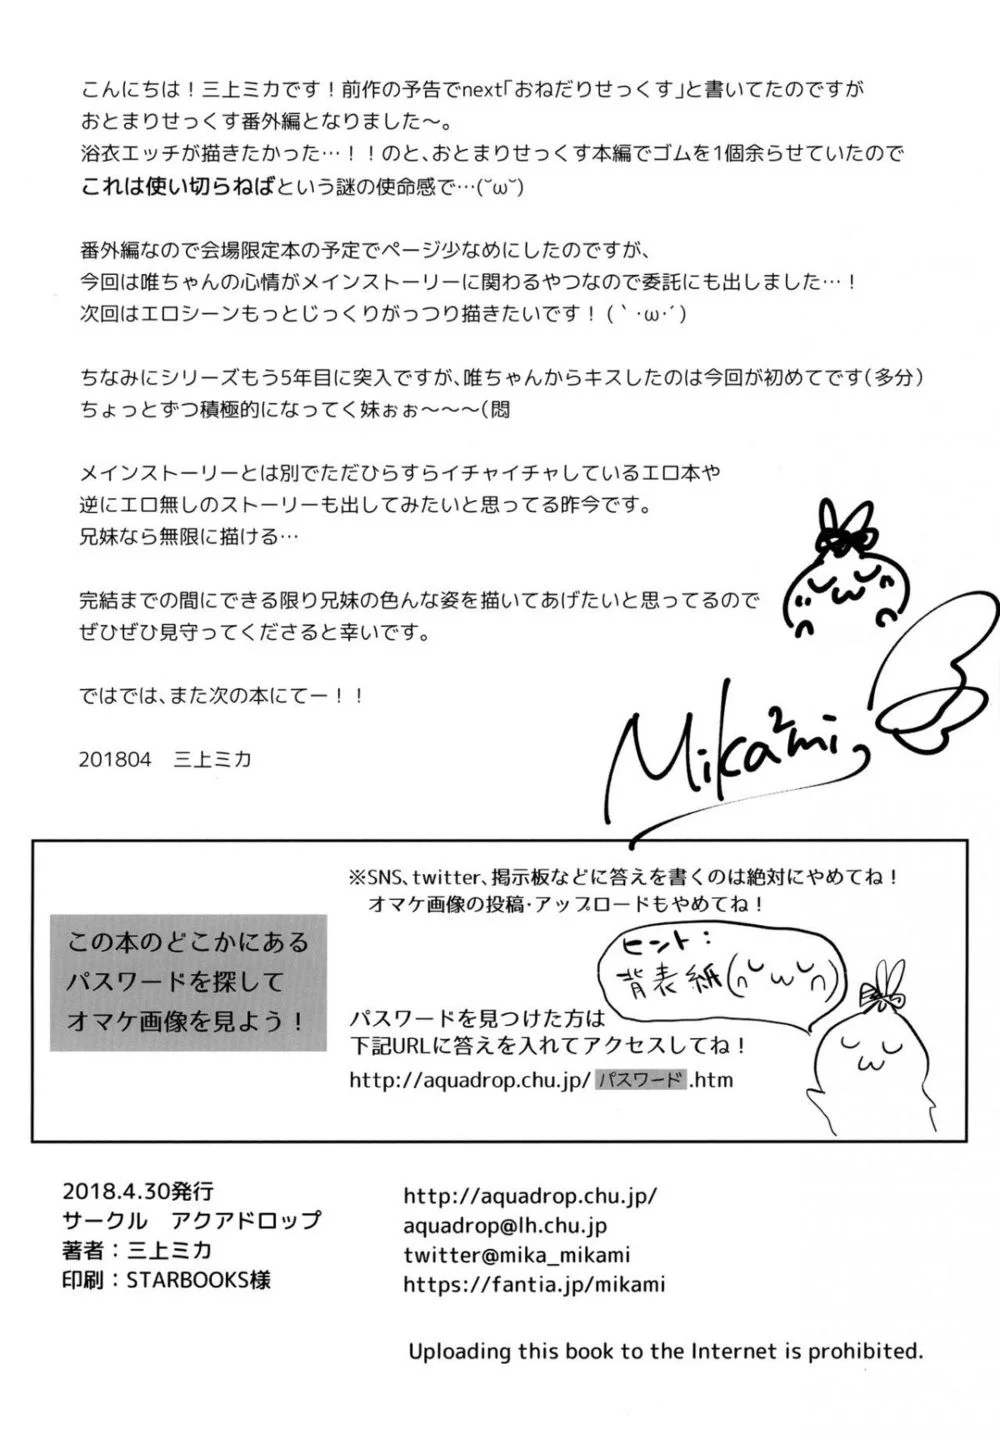 こんにちは！三上ミカです！前作の予告でnext「おねだりせっくす」と書いてたのですが
おとまりせっくす番外編となりました～。
浴衣エッチが描きたかった…！！のと、おとまりせっくす本編でゴムを1個余らせていたので
これは使い切らねばという謎の使命感で…(˘ω˘)
番外編なので会場限定本の予定でページ少なめにしたのですが、
今回は唯ちゃんの心情がメインストーリーに関わるやつなので委託にも出しました…！
次回はエロシーンもっとじっくりがっつり描きたいです！(｀･ω･´)
ちなみにシリーズもう5年目に突入ですが、唯ちゃんからキスしたのは今回が初めてです（多分）
ちょっとずつ積極的になってく妹ぉぉ～～～（悶
メインストーリーとは別でただひらすらイチャイチャしているエロ本や
逆にエロ無しのストーリーも出してみたいと思ってる昨今です。
兄妹なら無限に描ける…
完結までの間にできる限り兄妹の色んな姿を描いてあげたいと思ってるので
ぜひぜひ見守ってくださると幸いです。
ではでは、また次の本にてー！！
201804　三上ミカ
Mika2mi
この本のどこかにある
パスワードを探して
オマケ画像を見よう！
※SNS、twitter、掲示板などに答えを書くのは絶対にやめてね！
オマケ画像の投稿・アップロードもやめてね！
ヒント：
背表紙(∩˘ω˘∩)
パスワードを見つけた方は
下記URLに答えを入れてアクセスしてね！
http://aquadrop.chu.jp/パスワード.htm
2018.4.30発行
サークル　アクアドロップ
著者：三上ミカ
印刷：STARBOOKS様
http://aquadrop.chu.jp/
aquadrop@lh.chu.jp
twitter@mika_mikami
https://fantia.jp/mikami
Uploading this book to the Internet is prohibited.